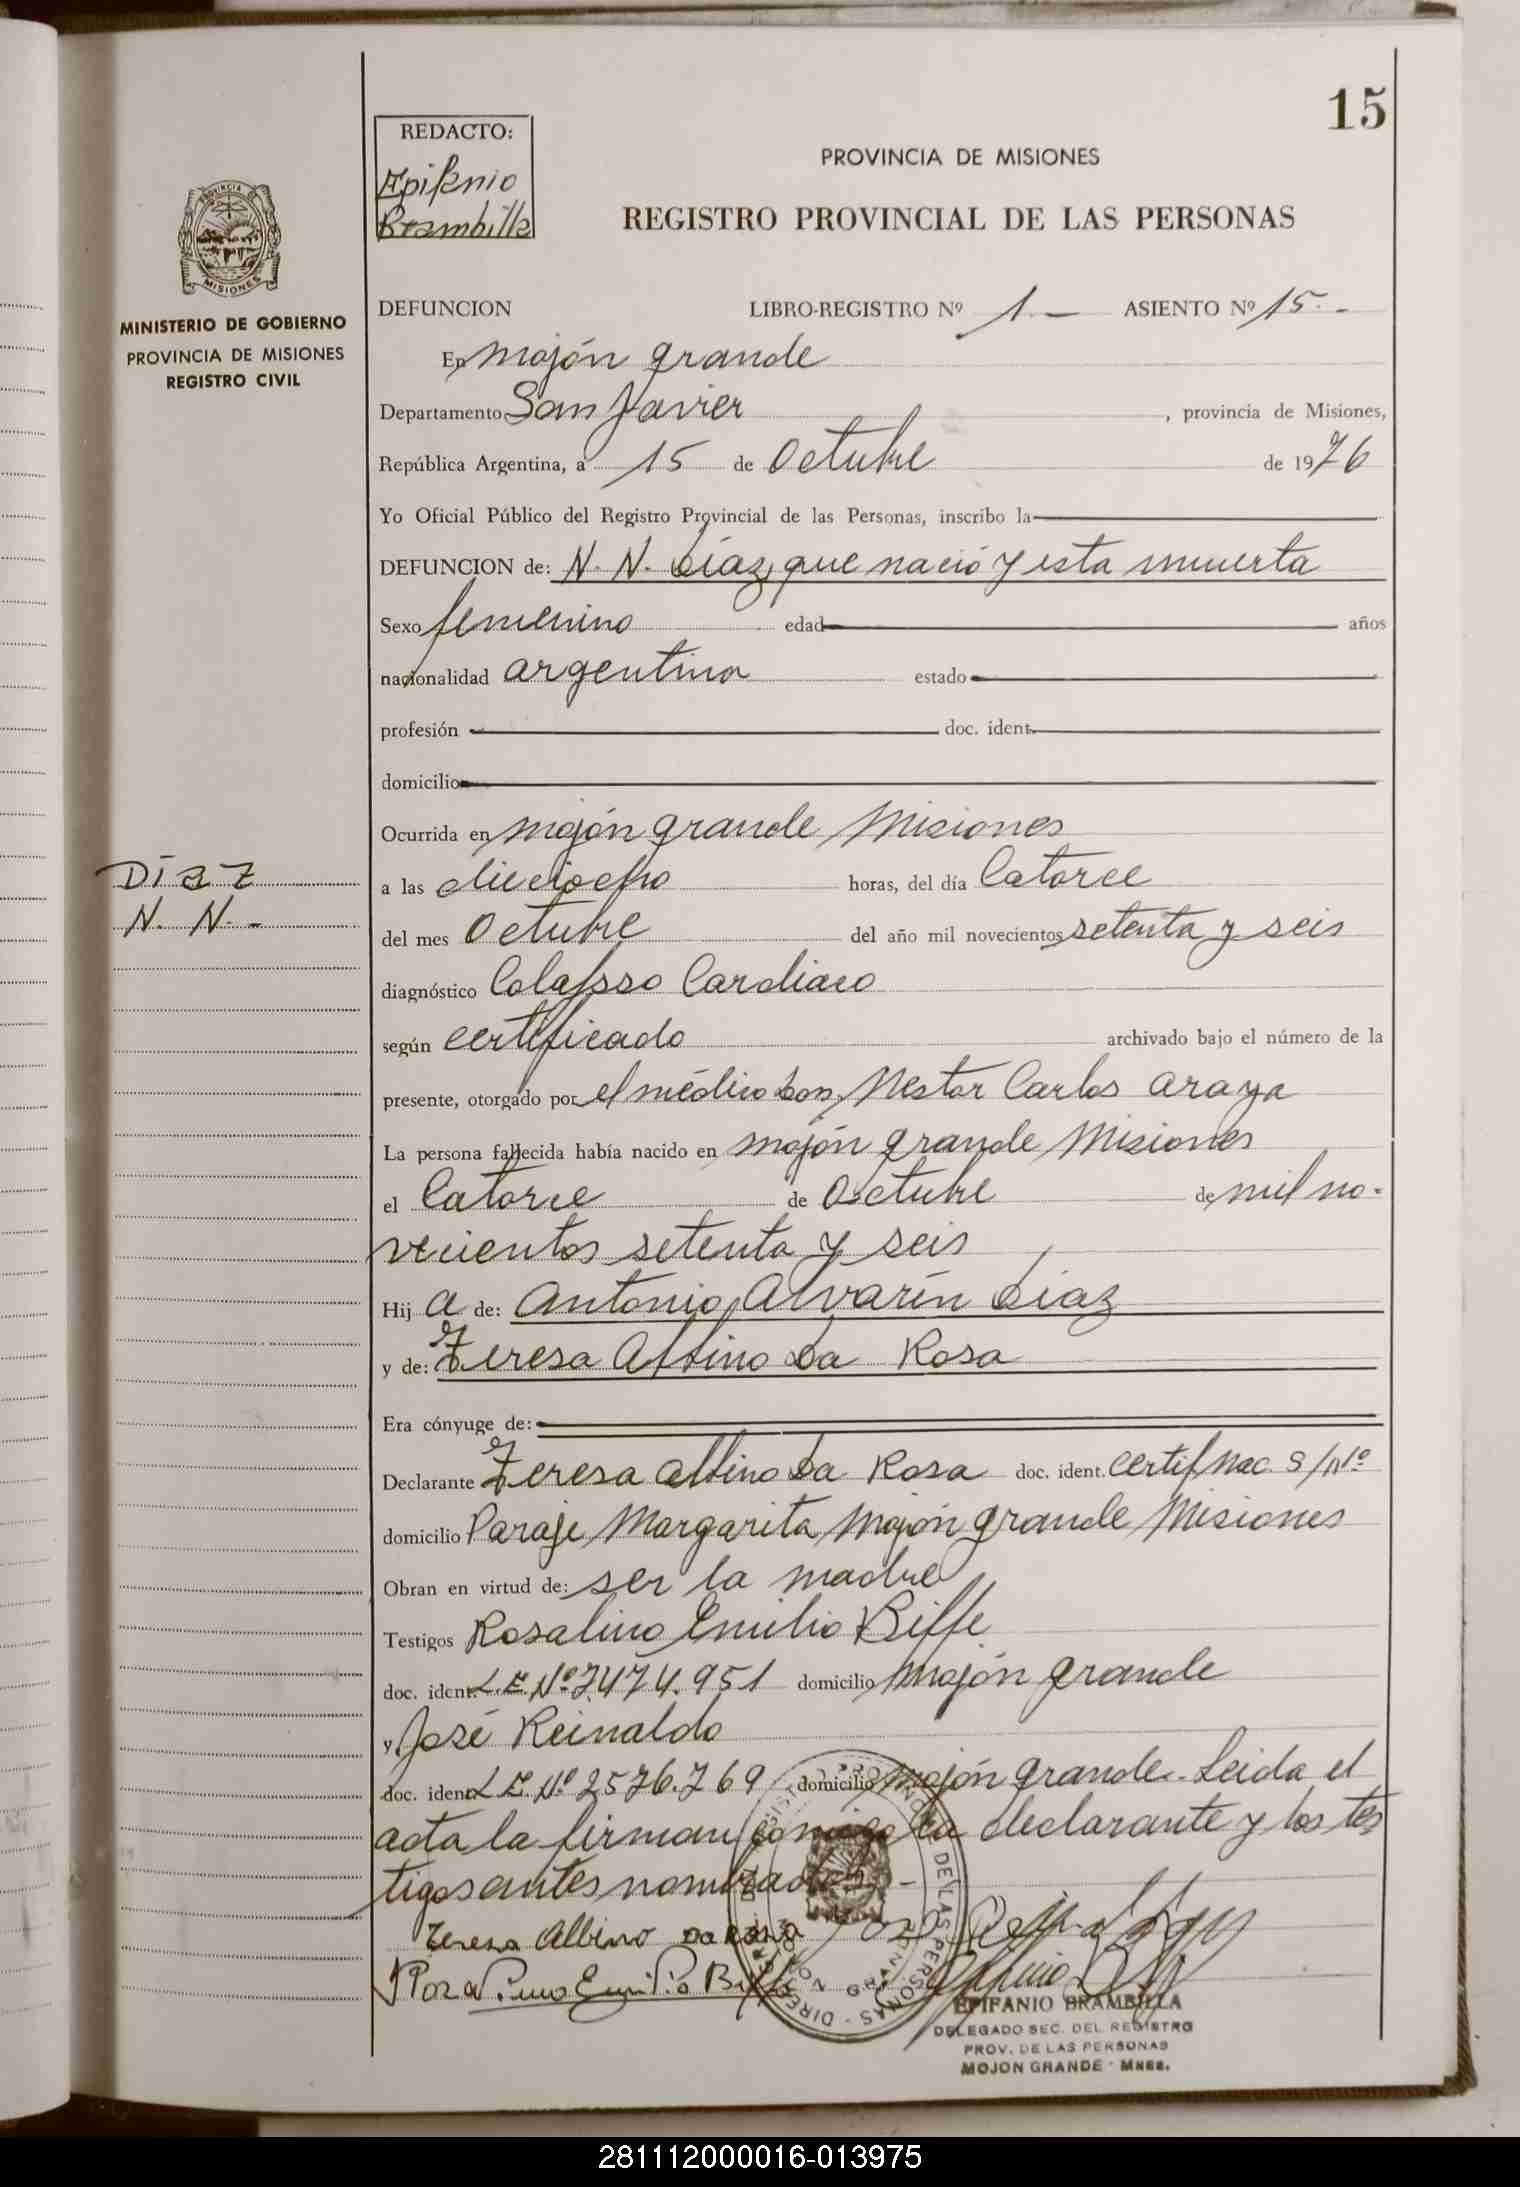 15
REDACTO:
Epifanio
Brambilla
PROVINCIA DE MISIONES
REGISTRO PROVINCIAL DE LAS PERSONAS
PROVINCIA DE
MISIONES
MINISTERIO DE GOBIERNO
PROVINCIA DE MISIONES
REGISTRO CIVIL
DEFUNCION LIBRO-REGISTRO Nº 1.- ASIENTO Nº 15.-
En Mojón grande
Departamento San Javier, provincia de Misiones,
República Argentina, a 15 de Octubre de 1976
Yo Oficial Público del Registro Provincial de las Personas, inscribo la
DEFUNCION de: N. N. Díaz, que nació y esta muerta
Sexo femenino edad años
nacionalidad argentina estado
profesión doc. ident.
domicilio
Ocurrida en Mojón grande Misiones
a las dieciocho horas, del día Catorce
del mes Octubre del año mil novecientos setenta y seis
diagnóstico Colapsso Cardiaco
según certificado archivado bajo el número de la
presente, otorgado por el médico Don, Nestor Carlos Araya
La persona fallecida había nacido en Mojón grande Misiones
el Catorce de Octubre de mil no-
vecientos setenta y seis
Hij a de: Antonio Alvarín Díaz
y de: Teresa Albino Da Rosa
Era cónyuge de:
Declarante Teresa Albino Da Rosa doc. ident. Certif. Nac. S/Nº
domicilio Paraje Margarita Mojón grande Misiones
Obran en virtud de: ser la madre
Testigos Rosalino Emilio Biffe
doc. ident. L.E. Nº 7.474.951 domicilio Mojón grande
y José Reinaldo
doc. ident. L.E. Nº 2576.769 domicilio Mojón grande. Leida el
acta la firman conmigo la declarante y los tes
tigos antes nombrados.-
Teresa Albino Da Rosa
DIAZ
N. N.-
EPIFANIO BRAMBILLA
DELEGADO SEC. DEL REGISTRO
PROV. DE LAS PERSONAS
MOJON GRANDE - Mnes.
281112000016-013975